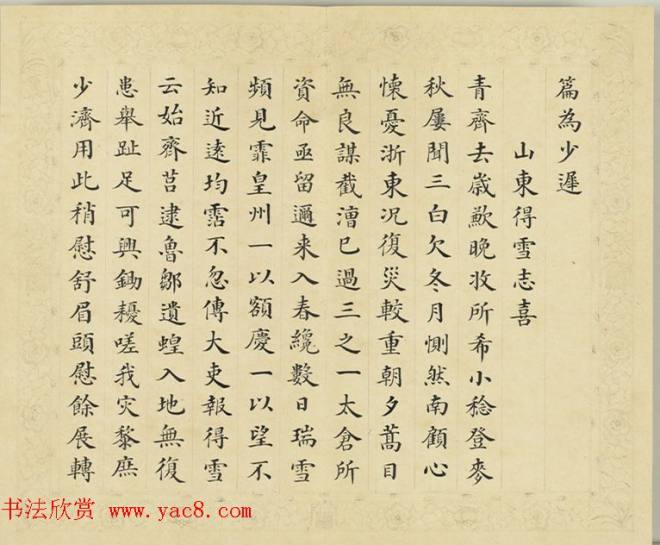 篇為少遲
山東得雪志喜
青齊去歲歉晚收所希小稔登麥
秋屢聞三白欠冬月惻然南顧心
懷憂浙東況復災較重朝夕蒿目
無良謀截漕已過三之一太倉所
資命亟留邇来入春纔數日瑞雪
頻見霏皇州一以額慶一以望不
知近遠均霑不忽傳大吏報得雪
云始齊莒逮魯鄒遺蝗入地無復
患舉趾足可興鋤耰嗟我灾黎庶
少濟用此稍慰舒眉頭慰餘展轉
书法欣赏 www.yac8.com